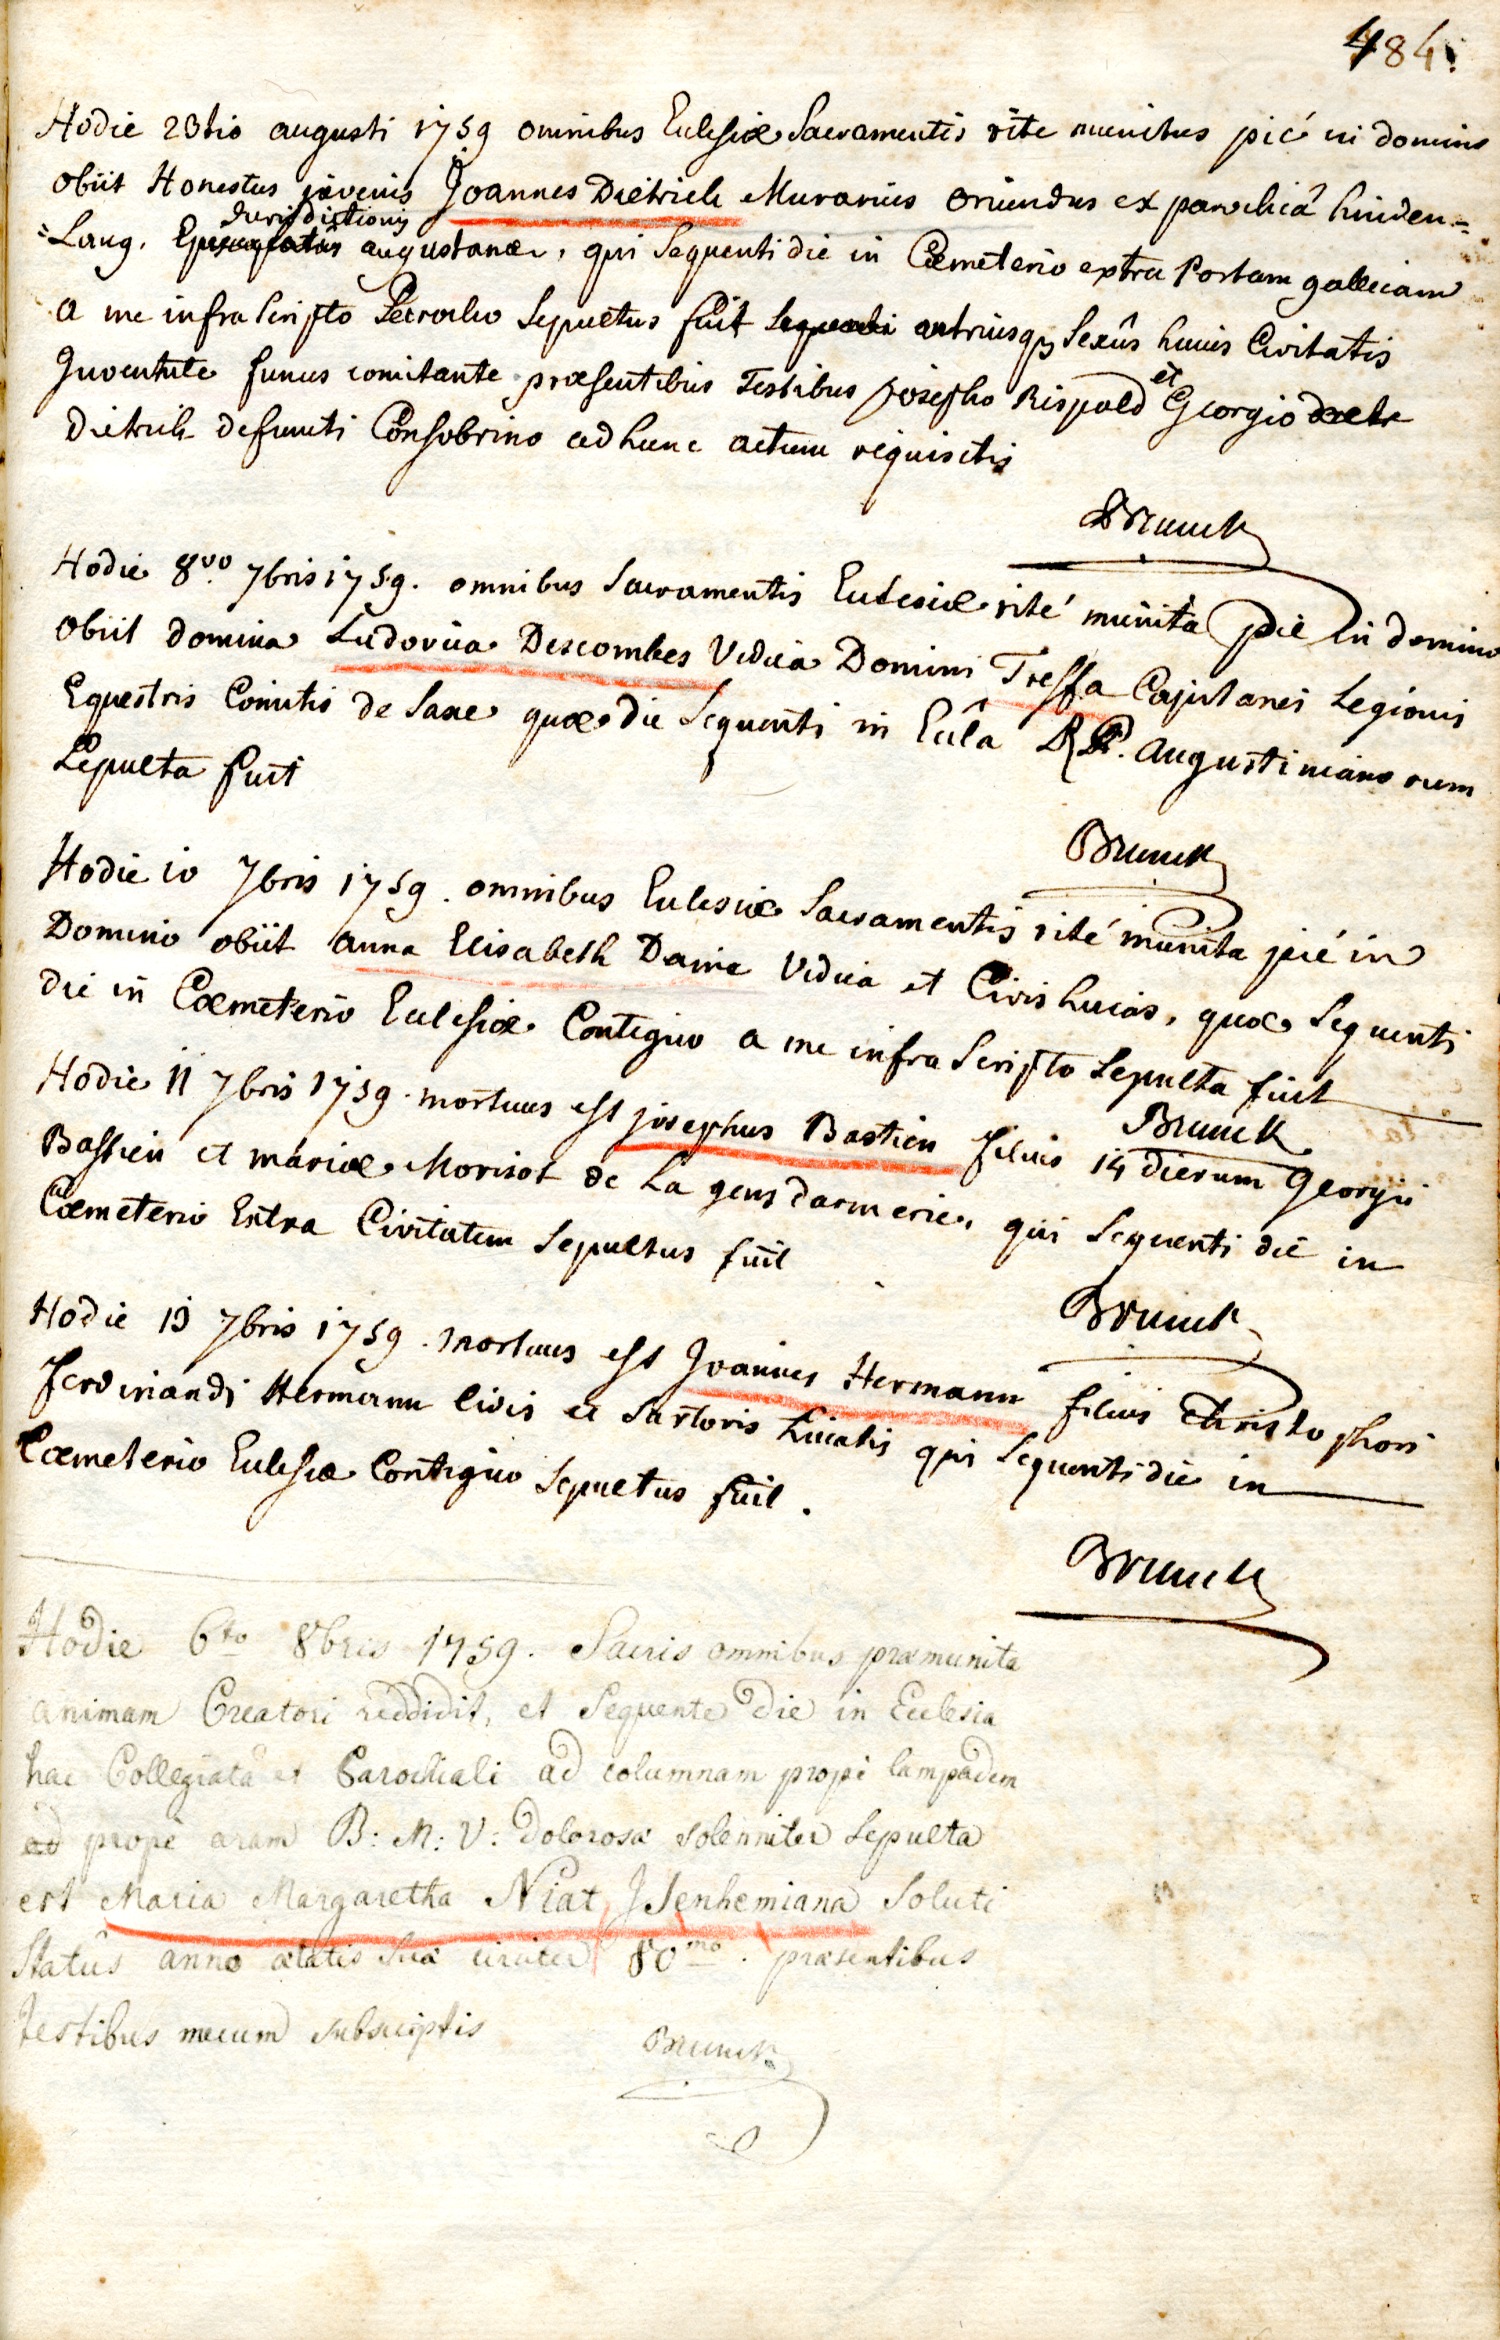 484.
Hodie 23tio augusti 1759 omnibus Eclesiæ Sacramentis rite munitus pié in domino
obiit Honestus juvenis Joannes Dietrich Murarius oriundus ex parochiâ hinden=
Jurisdictionis
=Lang. augustanæ, qui Sequenti die in Cœmeterio extra Portam gallicam
a me infra Scripto Parocho Sepultus fuit utriusq3 Sexûs huius Civitatis
Juventute funus comitante præsentibus Testibus Josepho Rispold et Georgio
Dietrich defuncti Consobrino ad hunc actum requisitis
Brunck
Hodie 8vo. 7bris 1759. omnibus Sacramentis Eclesiæ rité munita pie in domino
obiit domina Ludovica Descombes Vidua Domini Treffa Capitanei Legionis
Equestris Comitis de Saxe quæ die Sequenti in Eclâ R.P. Augustinianorum
Sepulta fuit
Brunck
Hodie 10 7bris 1759. omnibus Eclesiæ Sacramentis rité munita pié in
Domino obiit anna Elisabeth Daine Vidua et Civis huias, quæ Sequenti
die in Cœmeterio Eclesiæ Contiguo a me infra Scripto Sepulta fuit
Brunck
Hodie 11 7bris 1759. mortuus est josephus Bastien filius 14 dierum Georgii
Bastien et mariæ Morisot de La gens darmerie, qui Sequenti die in
Cœmeterio Extra Civitatem Sepultus fuit
Brunck
Hodie 13 7bris 1759. mortuus est Joannes Hermann filius Christophori
Ferdinandi Hermann Civis et Sartoris huiatis qui Sequenti die in
Cœmeterio Eclesiæ Contiguo Sepultus fuit.
Brunck
Hodie 6to 8bris 1759. Sacris omnibus præmunita
animam Creatori reddidit, et Sequente die in Ecclesia
hac Collegiata et Parochiali ad columnam propè lampadem
ad propè aram B: M: V: dolorosæ solenniter Sepulta
est Maria Margaretha Niat, Jsenhemiana Soluti
Statûs anno ætatis Suæ circiter 80mo. præsentibus
testibus mecum subscriptis
Brunck